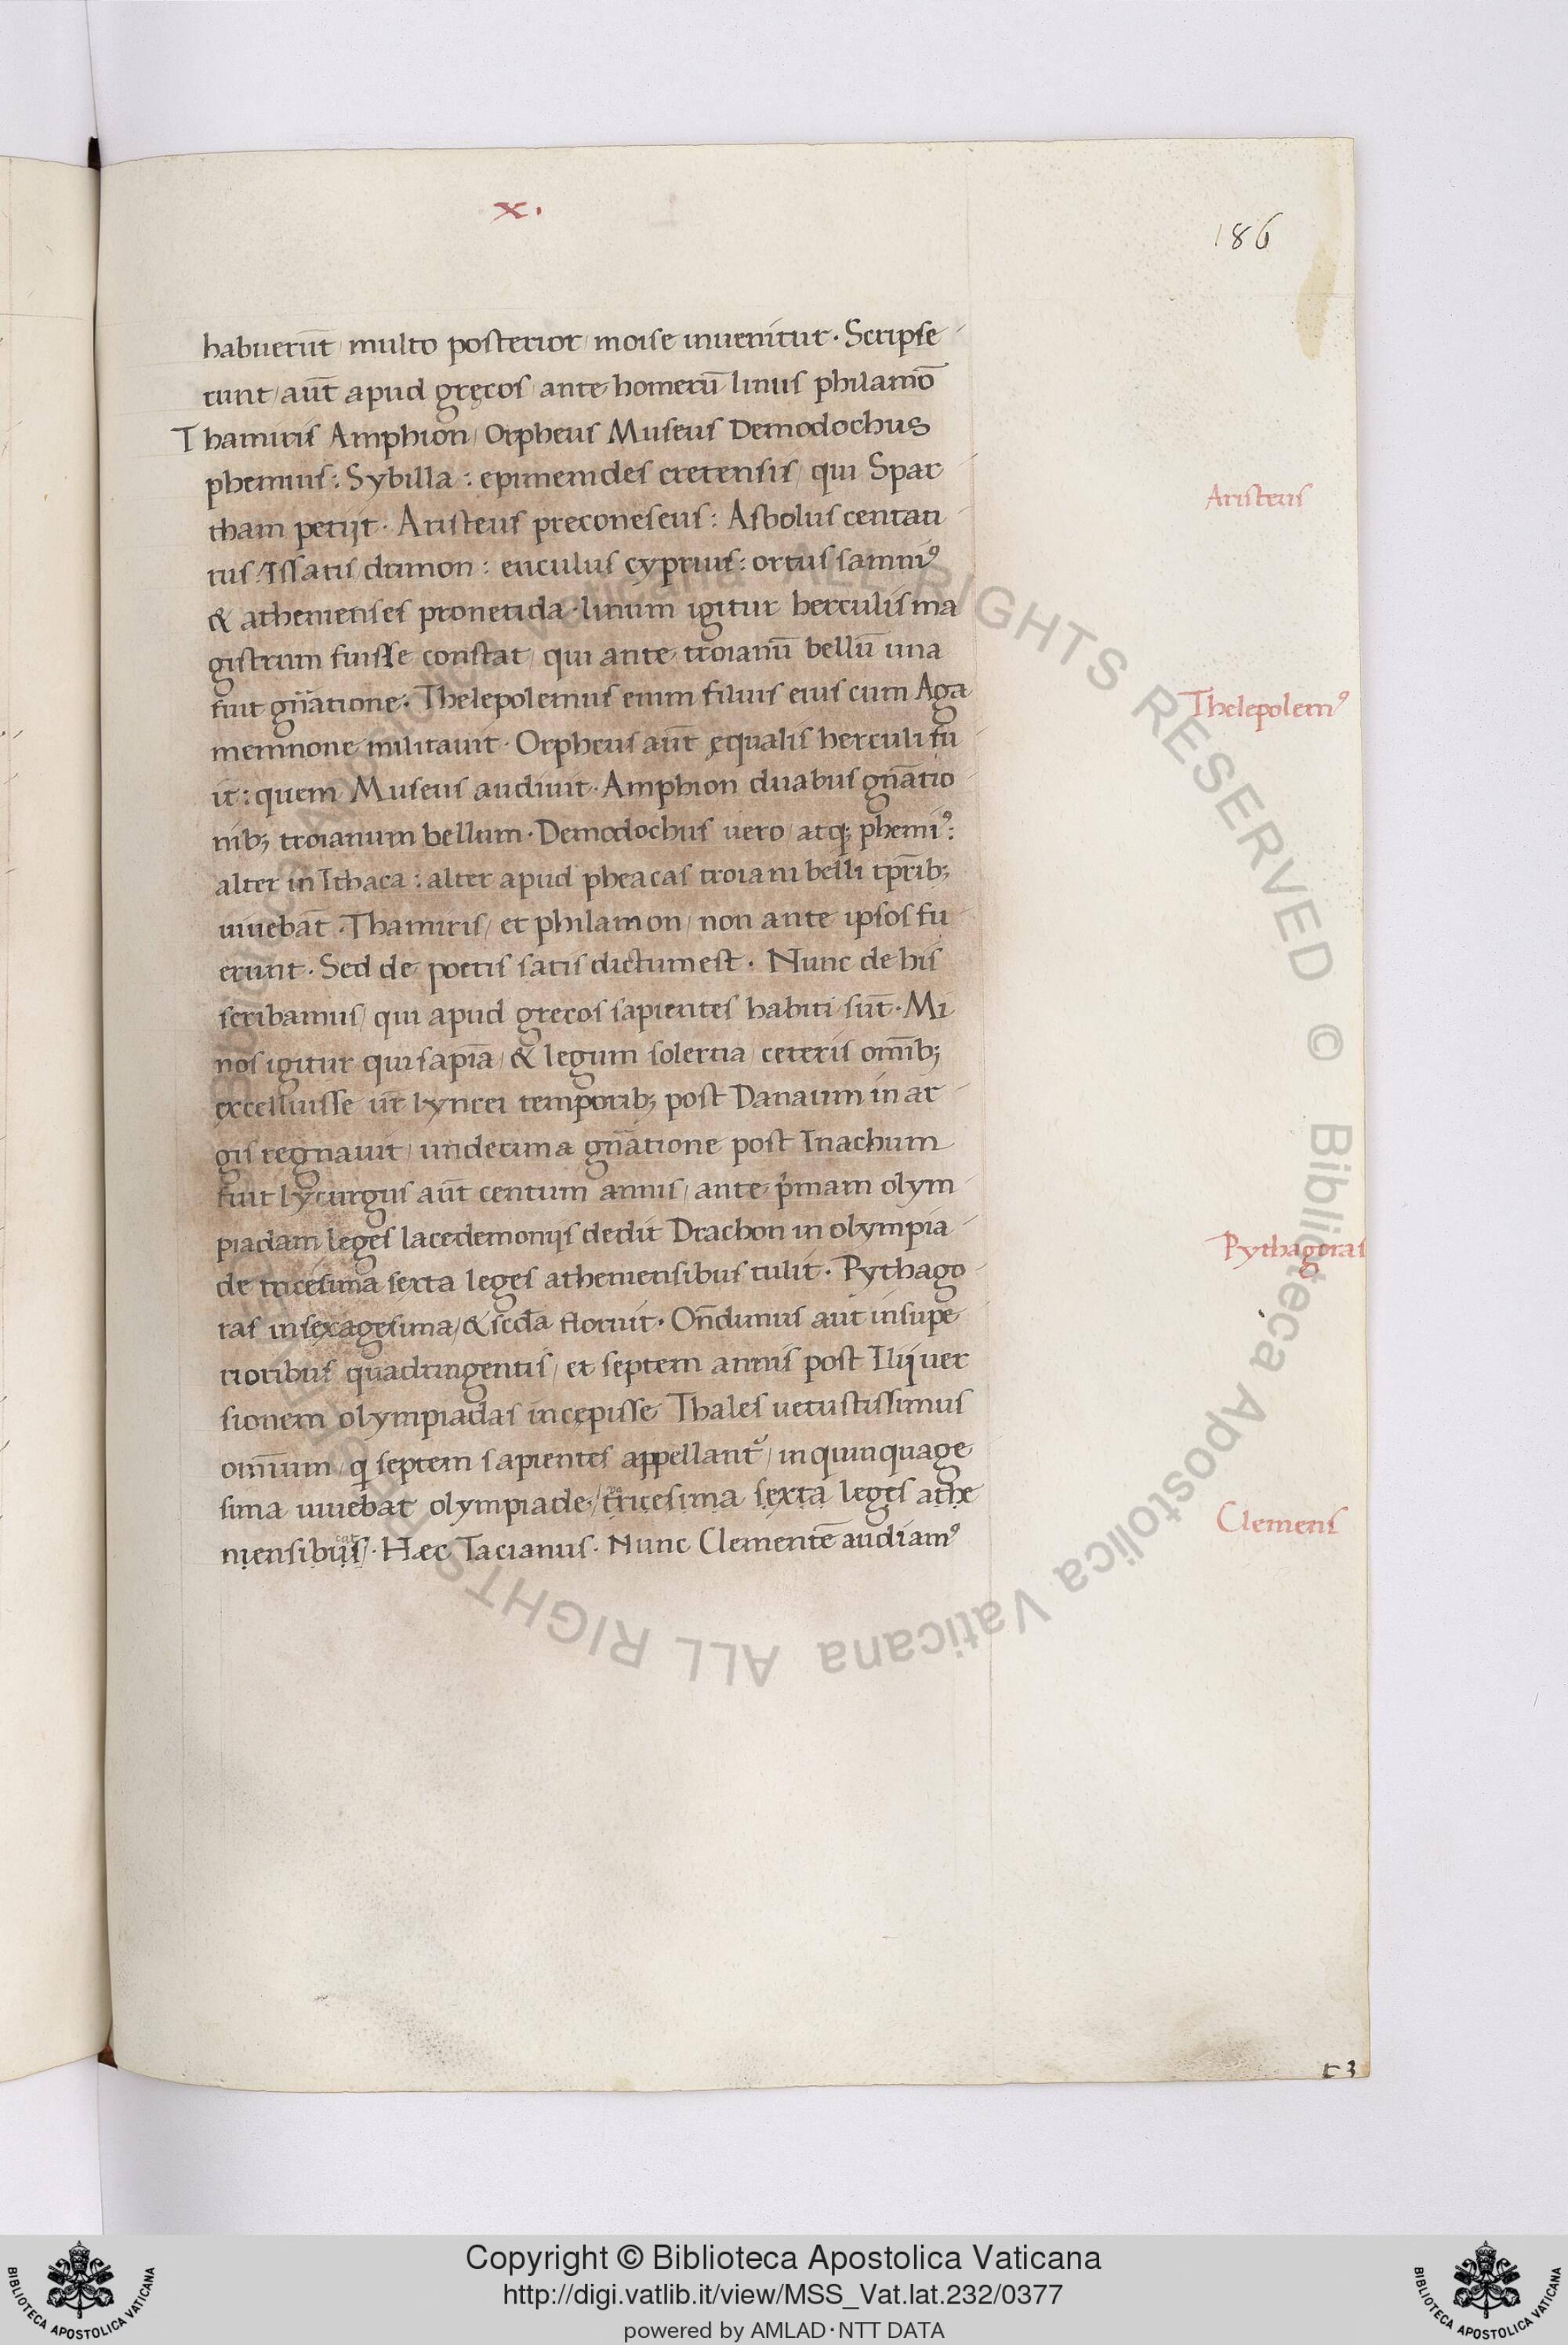 x.
186
habuerūt / multo posterior / moise inuenitur · Scripse
runt / aūt apud gręcos / ante homerū linus philamō
Thamiris Amphion / Orpheus Museus Demodochus
phemius : Sybilla : epimenides cretensis / qui Spar
tham petijt · Aristeus preconeseus : Asbolus centau
rus / Issatis / drimon : euculus cyprius : ortus samniꝰ
& athenienses pronetida · linum igitur herculis ma
gistrum fuisse constat / qui ante troianū bellū una
fuit gn̄atione · Thelepolemus enim filius eius cum Aga
memnone militauit · Orpheus aūt ęqualis herculi fu
it : quem Museus audiuit · Amphion duabus gn̄atio
nib; troianum bellum · Demodochus uero / atq; phemiꝰ :
alter in Ithaca : alter apud pheacas troiani belli tp̄rib;
uiuebāt · Thamiris / et philamon / non ante ipsos fu
erunt · Sed de poetis satis dictum est · Nunc de his
scribamus / qui apud grecos sapientes habiti sūt · Mi
nos igitur qui sapīa / & legum solertia / ceteris om̄ib;
excelluisse ut lyncei temporib; post Danaum in ar
gis regnauit / undecima gn̄atione post Inachum
fuit lycurgus aūt centum annis / ante pͥmam olym
piadam leges lacedemonijs dedit Drachon in olympia
de tricesima sexta leges atheniensibus tulit · Pythago
ras in sexagesima / & scd̄a floruit · On̄dimus aūt in supe
rioribus quadringentis / et septem annis post Ilij uer
sionem olympiadas incępisse Thales uetustissimus
om̄ium / qͥ septem sapientes appellantᷣ / in quinquage
sima uiuebat olympiade · / tricesima sexta leges athe
niensibus / · Hæc Tacianus · Nunc Clementē audiamꝰ
Aristeus
Thelepolemꝰ
Pythagoras
Clemens
t 3
Biblioteca Apostolica Vaticana ALL RIGHTS RESERVED © Biblioteca Apostolica Vaticana ALL RIGHTS RESERVED ©
BIBLIOTECA APOSTOLICA VATICANA
Copyright © Biblioteca Apostolica Vaticana
http://digi.vatlib.it/view/MSS_Vat.lat.232/0377
powered by AMLAD·NTT DATA
BIBLIOTECA APOSTOLICA VATICANA